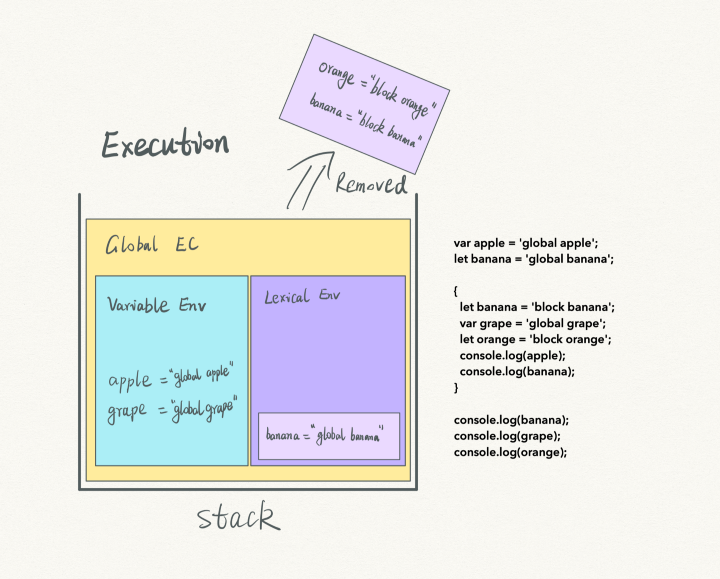 orange = "block orange"
banana = "block banana"
Execution
Removed
Global EC
Variable Env
apple = "global apple"
grape = "global grape"
Lexical Env
banana = "global banana"
stack
var apple = 'global apple';
let banana = 'global banana';
{
let banana = 'block banana';
var grape = 'global grape';
let orange = 'block orange';
console.log(apple);
console.log(banana);
}
console.log(banana);
console.log(grape);
console.log(orange);